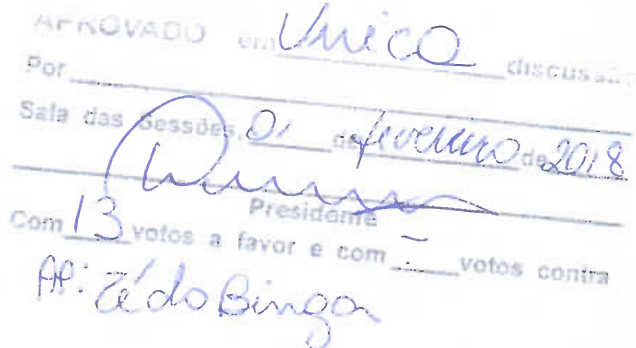 APROVADO em Única discussão
Por
Sala das Sessões, 01 de fevereiro de 2018
Presidente
Com 13 votos a favor e com - votos contra
AP: Zé do Binga